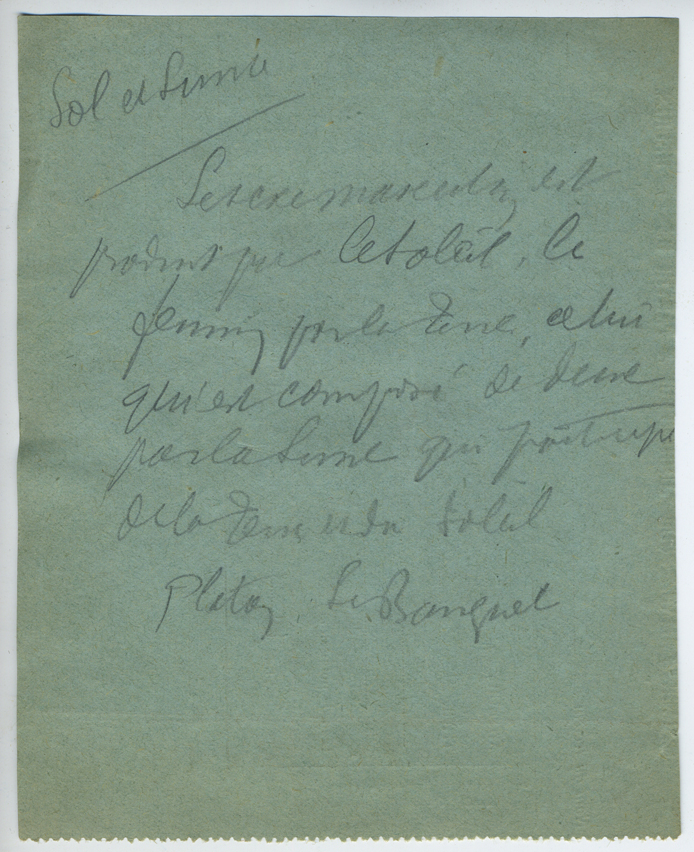 Sol et Lune
Le sexe masculin est
produit par le soleil, le
féminin par la Terre, celui
qui est composé de deux
par la Lune qui participe
de la Terre et du Soleil
Platon, Le Banquet